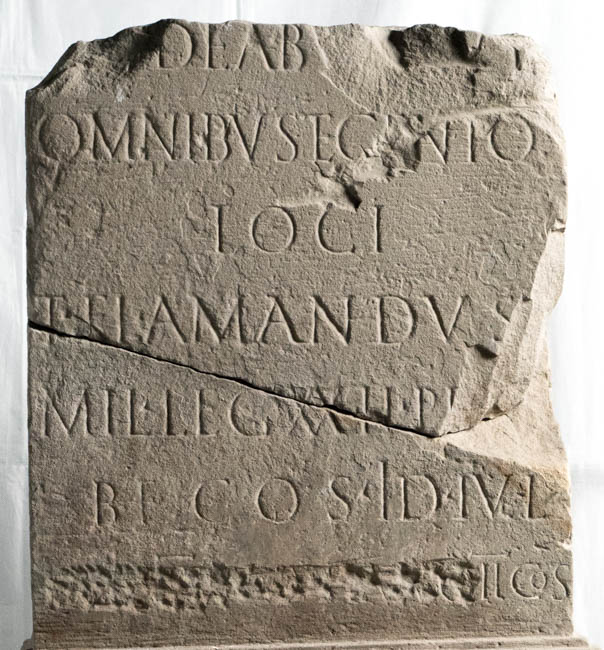 DEAB
OMNIBVS E GENIO
LOCI
T·FL AMANDVS
MIL·LEG·XXII·P
BF COS·ID·IVL
II COS